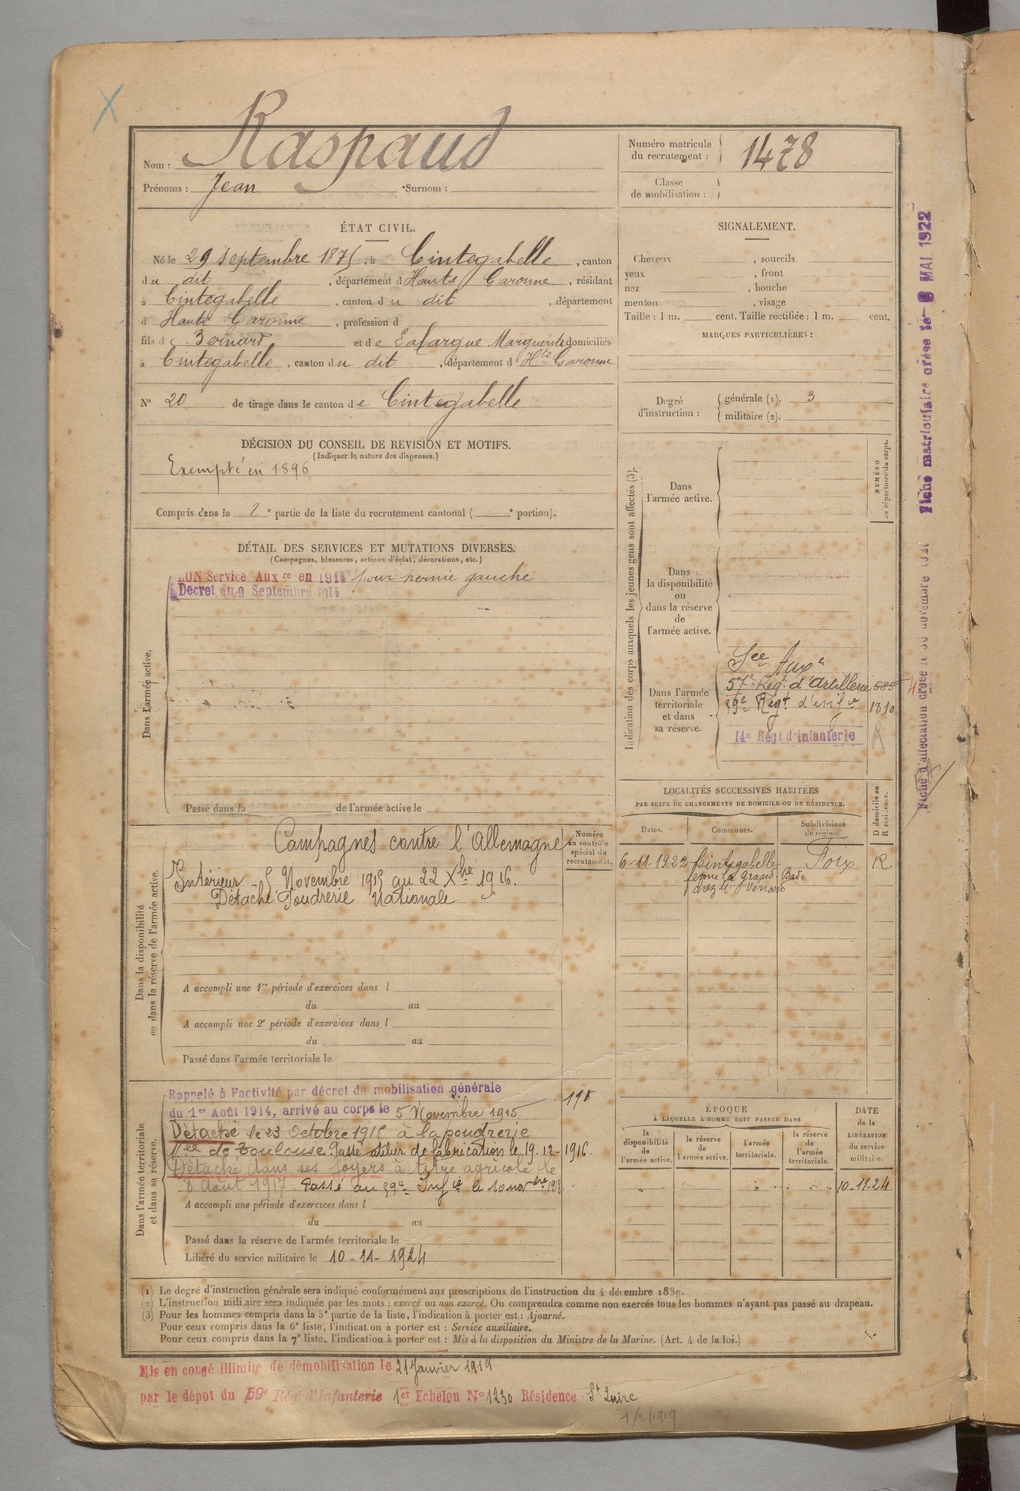 Nom : Raspaud
Prénoms : Jean Surnom :
Numéro matricule du recrutement : 1478
Classe de mobilisation :
ÉTAT CIVIL.
Né le 29 Septembre 1875, à Cintegabelle, canton
du dit, département d Haute Garonne, résidant
à Cintegabelle, canton du dit, département
d Haute Garonne, profession d
fils de Bernard et de Lafargue Marguerite domiciliés
à Cintegabelle, canton du dit, département d Hte Garonne
N° 20 de tirage dans le canton de Cintegabelle
SIGNALEMENT.
Cheveux , sourcils
yeux , front
nez , bouche
menton , visage
Taille : 1 m. cent. Taille rectifiée : 1 m. cent.
MARQUES PARTICULIÈRES :
Degré d'instruction : générale (1). 3
militaire (2).
DÉCISION DU CONSEIL DE REVISION ET MOTIFS.
(Indiquer la nature des dispenses.)
Exempté en 1896
Compris dans la 2e partie de la liste du recrutement cantonal ( e portion).
DÉTAIL DES SERVICES ET MUTATIONS DIVERSES.
(Campagnes, blessures, actions d'éclat, décorations, etc.)
Dans l'armée active.
BON Service Auxre en 1914 pour hernie gauche
Décret du 9 Septembre 1914
Passé dans la de l'armée active le
Indication des corps auxquels les jeunes gens sont affectés (3).
NUMÉRO au répertoire du corps.
Dans l'armée active.
Dans la disponibilité ou dans la réserve de l'armée active.
Dans l'armée territoriale et dans sa réserve.
Sce Auxre
57e Rég. d'Artillerie 585
59e Régt d'inf 1830
14e Régt d'Infanterie
LOCALITÉS SUCCESSIVES HABITÉES
PAR SUITE DE CHANGEMENTS DE DOMICILE OU DE RÉSIDENCE.
Dates. Communes. Subdivisions de région. D domicile ou R résidence.
6-11-1922 Cintegabelle Foix R
ferme la grand Bade
chez Mr
Dans la disponibilité ou dans la réserve de l'armée active.
Numéro au contrôle spécial du recrutement.
Campagnes contre l'Allemagne
Intérieur 5 Novembre 1915 au 22 Xbre 1916.
Détaché Poudrerie Nationale
A accompli une 1re période d'exercices dans l
du au
A accompli une 2e période d'exercices dans l
du au
Passé dans l'armée territoriale le
Dans l'armée territoriale et dans sa réserve.
Rappelé à l'activité par décret de mobilisation générale
du 1er Août 1914, arrivé au corps le 5 Novembre 1915
Détaché le 23 Octobre 1916 à la poudrerie
Nle de Toulouse. Passé atelier de fabrication le 19-12-1916.
Détaché dans ses foyers à titre agricole le
8 Août 1917. Passé au 59e Infie le 10 novbre 1918
A accompli une période d'exercices dans l
du au
Passé dans la réserve de l'armée territoriale le
Libéré du service militaire le 10-11-1924
ÉPOQUE
À LAQUELLE L'HOMME DOIT PASSER DANS
la disponibilité de l'armée active. la réserve de l'armée active. l'armée territoriale. la réserve de l'armée territoriale.
DATE DE LA LIBÉRATION du service militaire.
10-11-24
(1) Le degré d'instruction générale sera indiqué conformément aux prescriptions de l'instruction du 4 décembre 1889.
(2) L'instruction militaire sera indiquée par les mots : exercé ou non exercé. On comprendra comme non exercés tous les hommes n'ayant pas passé au drapeau.
(3) Pour les hommes compris dans la 5e partie de la liste, l'indication à porter est : Ajourné.
Pour ceux compris dans la 6e liste, l'indication à porter est : Service auxiliaire.
Pour ceux compris dans la 7e liste, l'indication à porter est : Mis à la disposition du Ministre de la Marine. (Art. 4 de la loi.)
Mis en congé illimité de démobilisation le 21 Janvier 1919
par le dépôt du 59e Rég d'Infanterie 1er Echelon N° 1230 Résidence St Quirc
1/2/1919
Fiche matriculaire créée le 8 MAI 1922
Fiche d'affectation créée le 30 novembre 1921